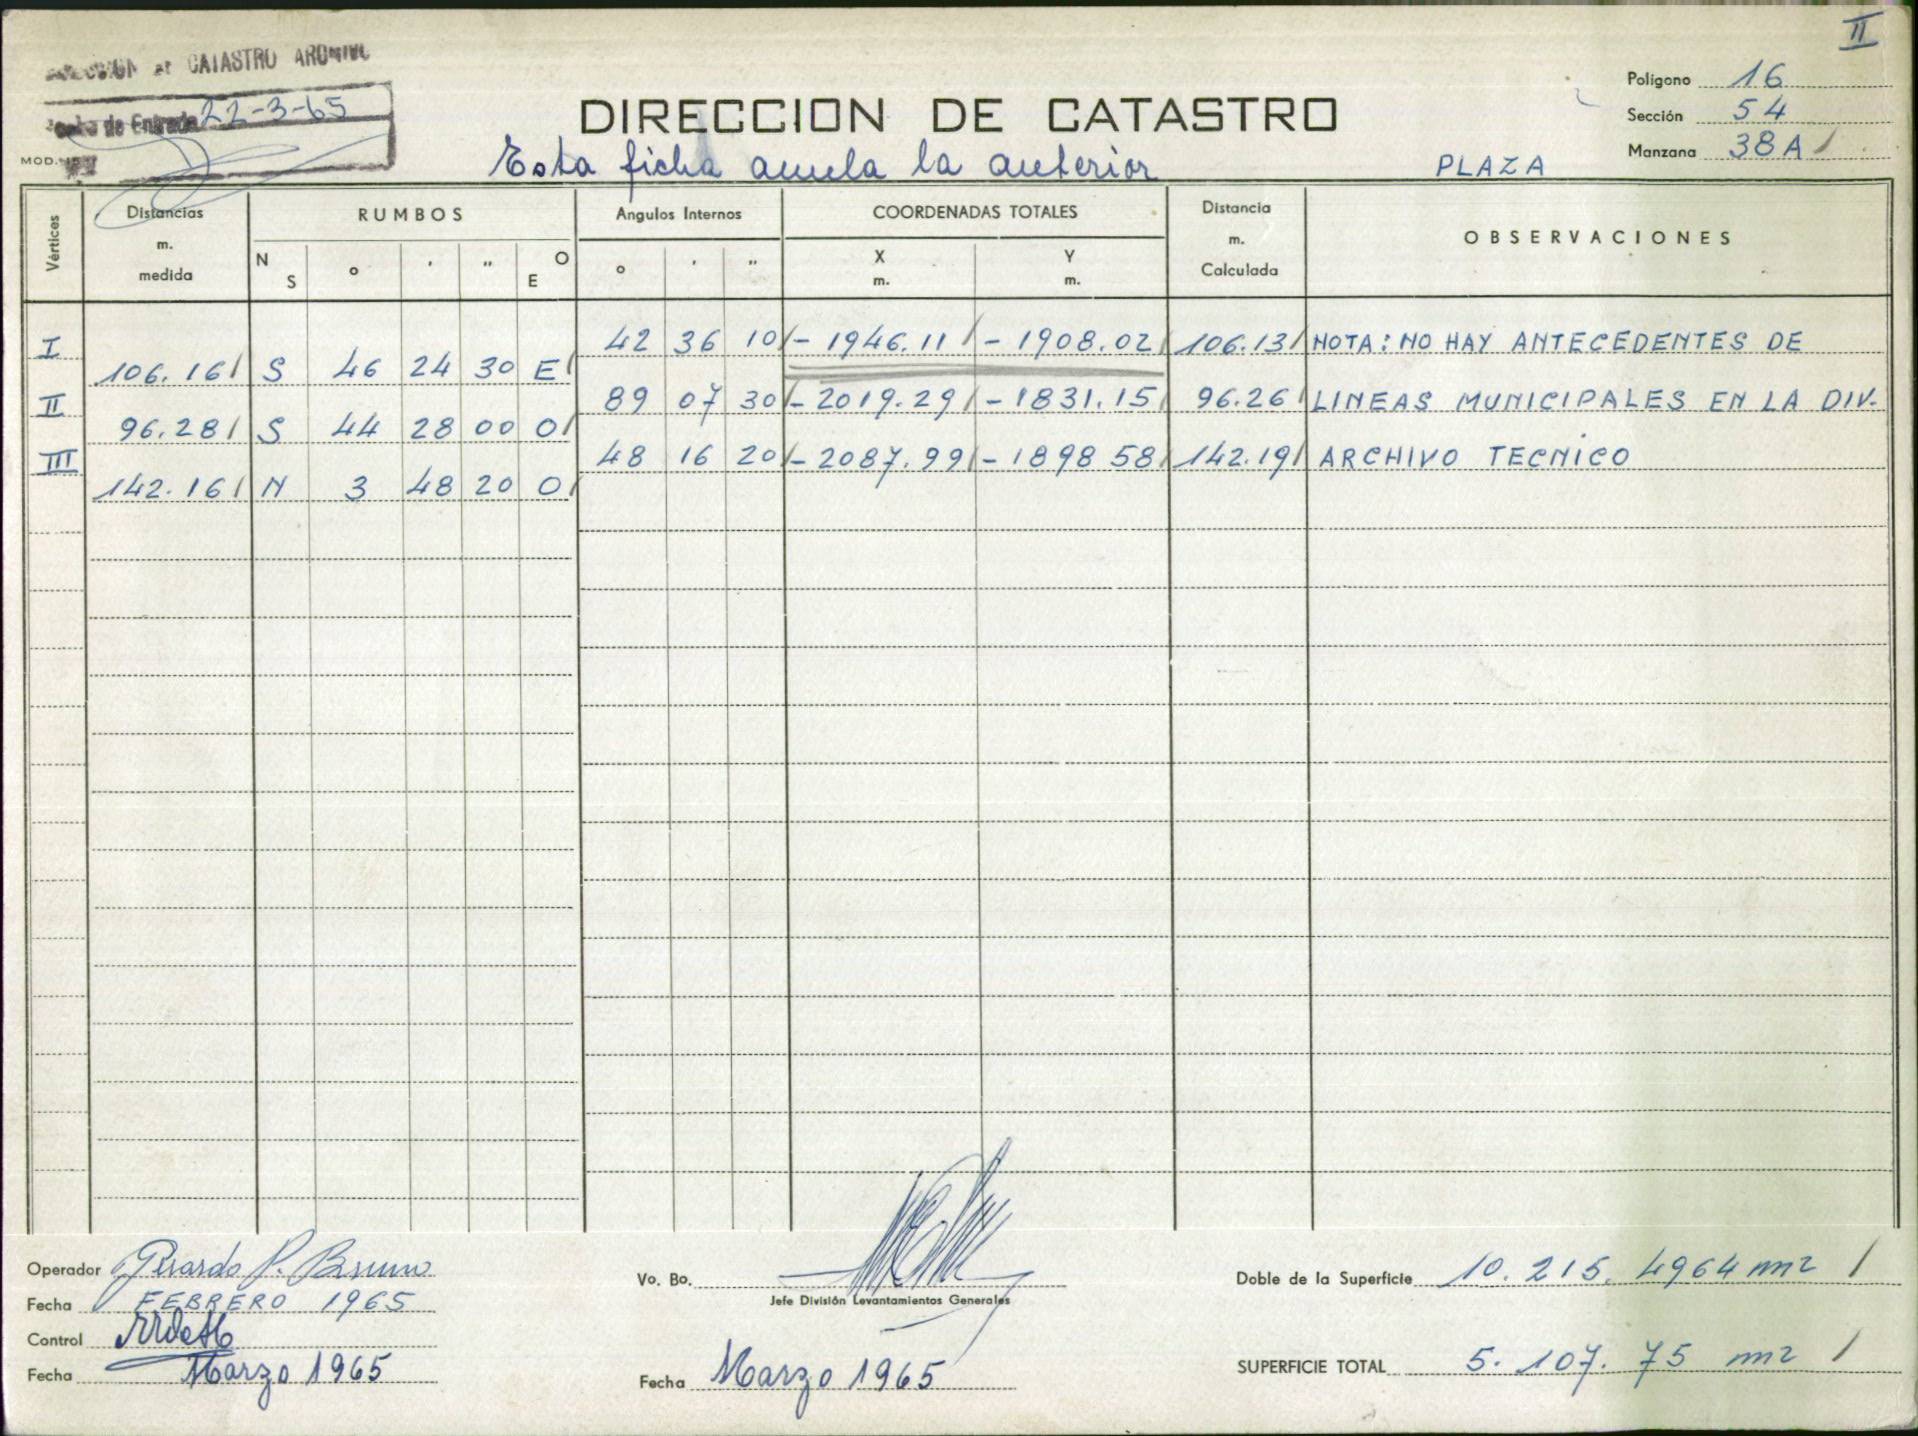 II
CATASTRO ARCHIVO
de Entrada 22-3-65
MOD.
DIRECCION DE CATASTRO
Esta ficha anula la anterior
PLAZA
Polígono 16
Sección 54
Manzana 38A
Vértices
Distancias m. medida
RUMBOS
N S ° ' " O E
Angulos Internos
° ' "
COORDENADAS TOTALES
X m. Y m.
Distancia m. Calculada
OBSERVACIONES
I 42 36 10 - 1946.11 - 1908.02 106.13 NOTA: NO HAY ANTECEDENTES DE
106.16 S 46 24 30 E
II 89 07 30 - 2019.29 - 1831.15 96.26 LINEAS MUNICIPALES EN LA DIV.
96.28 S 44 28 00 O
III 48 16 20 - 2087.99 - 1898 58 142.19 ARCHIVO TECNICO
142.16 N 3 48 20 O
Operador
Fecha FEBRERO 1965
Control
Fecha Marzo 1965
Vo. Bo.
Jefe División Levantamientos Generales
Fecha Marzo 1965
Doble de la Superficie 10.215.4964 m2
SUPERFICIE TOTAL 5.107.75 m2